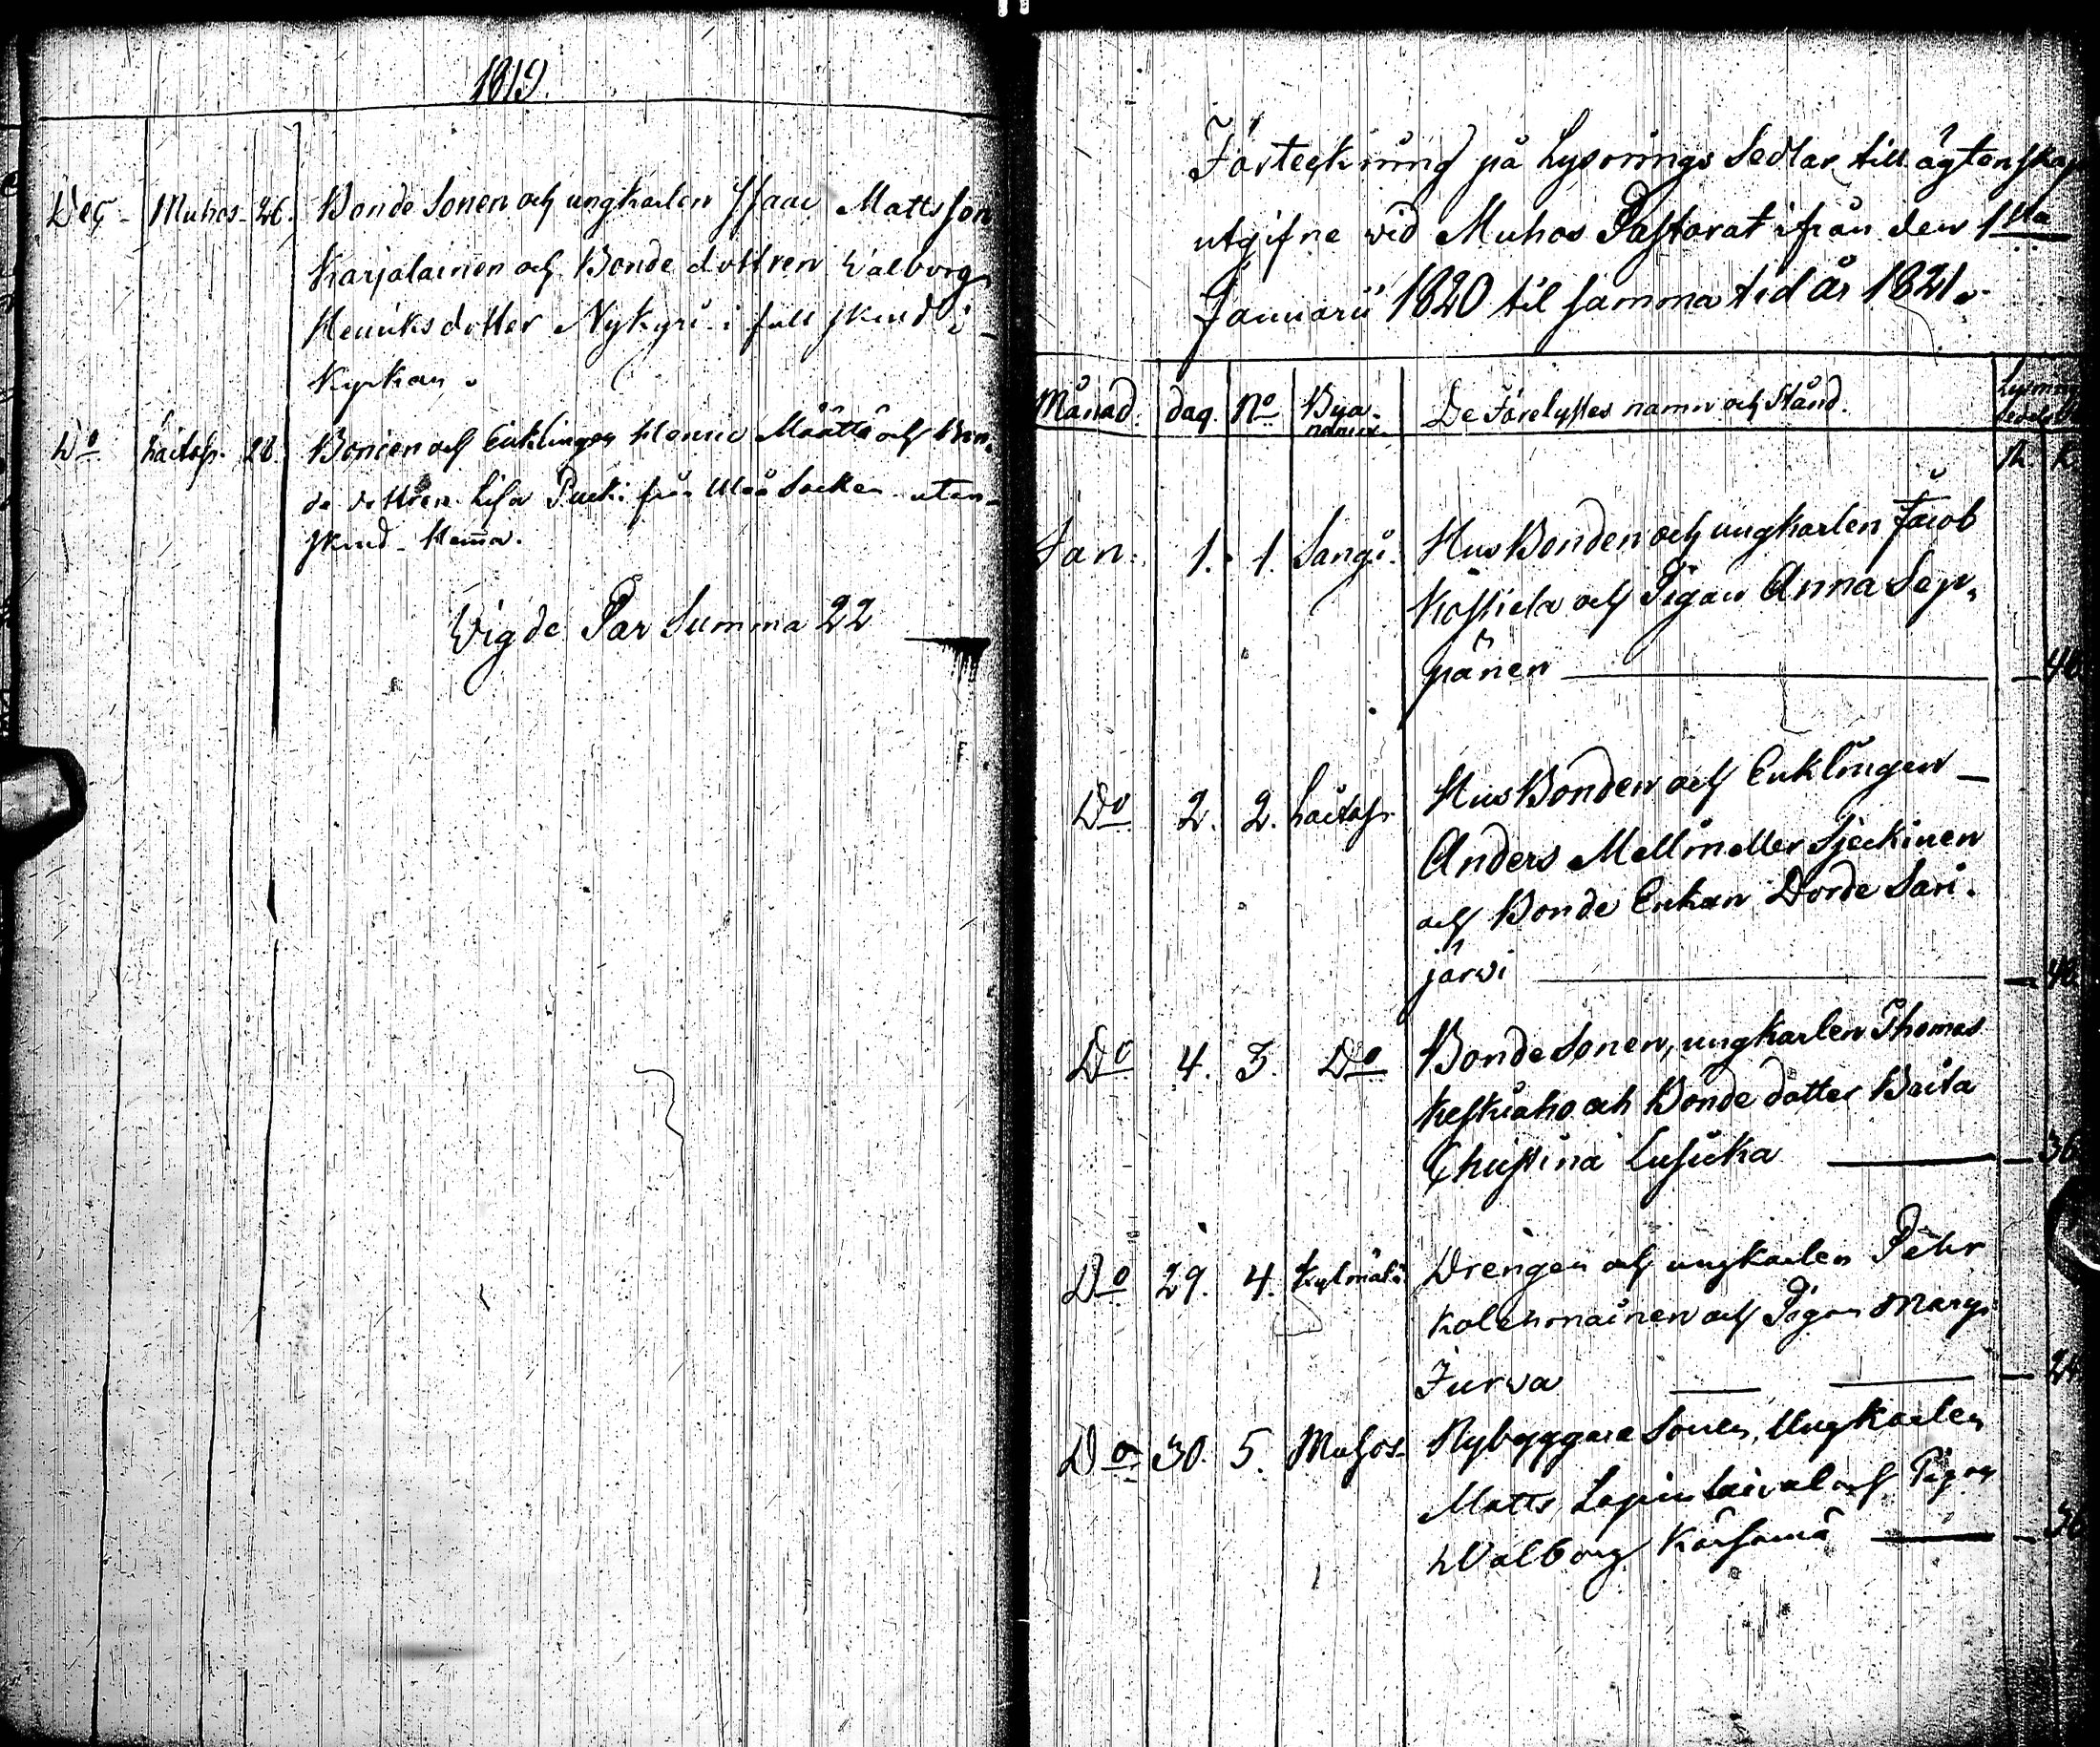 1819.
Dec - Muhos - 26. Bonde Sonen och ungkarlen Isaac Mattsson
Karjalainen och Bonde dottren Walborg
Henriksdotter Nykyri i full skrud i
Kyrkan.
Do Laitas. 28. Bonden och Enklingen Henric Määttä och Bon-
de dottren Lisa Pucki från Uleå Socken utan
skrud - Hema.
Vigde Par Summa 22
Förteckning på Lysnings Sedlar till ägtenskap
utgifne wid Muhos Pastorat ifrån den 1sta
Januarii 1820 til samma tid år 1821.
Månad. dag. No Bya-namn. De Förelystes namn och Stånd. Lysnings
R. K.
Jan: 1. 1. Sangi. Hus Bonden och ungkarlen Jacob
Koskela och Pigan Anna Sep-
pänen — 40
Do 2. 2. Laitas. Hus Bonden och Enklingen —
Anders Mellin eller Tjeckinen
och Bonde Enkan Dorde Sari-
järwi — 40
Do 4. 3. Do Bonde Sonen, ungkarlen Thomas
Keskiaho och Bonde dotter Brita
Christina Lusicka — 36
Do 29. 4. Kylmälä Drengen och ungkarlen Pehr
Kolehmainen och Pigan Marg:
Jurwa — 24
Do 30. 5. Muhos Nybyggare Sonen, Ungkarlen
Matts Lapinlaival och Pigan
Walborg Kärsämä — 36